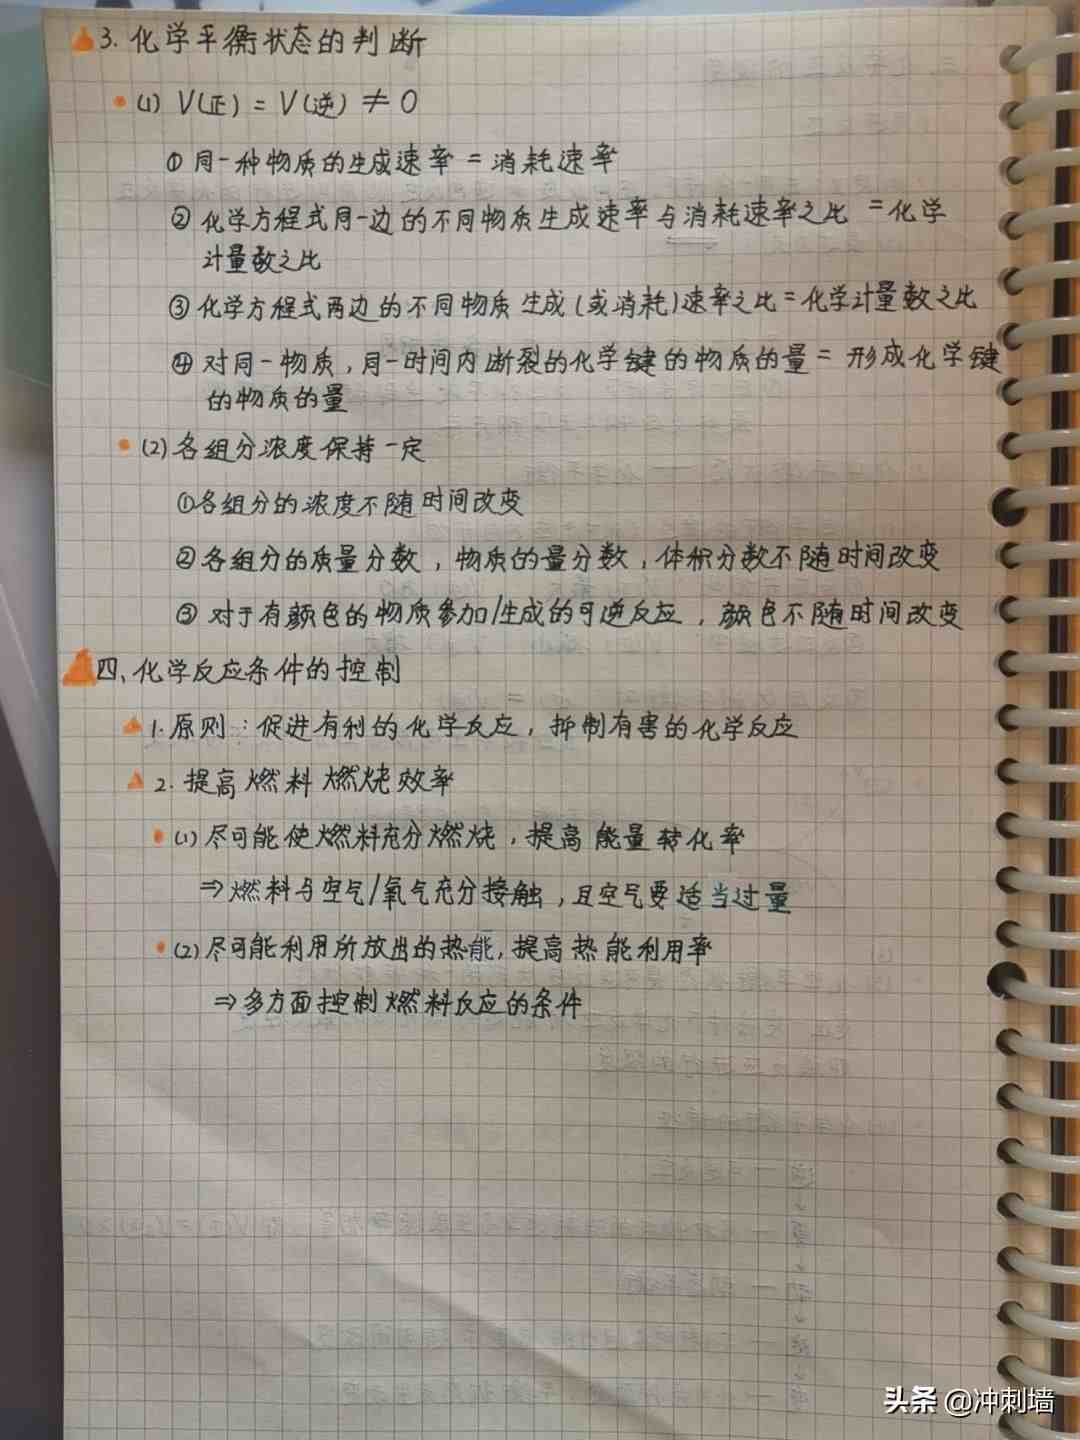 3. 化学平衡状态的判断
(1) V(正) = V(逆) ≠ 0
① 同一种物质的生成速率 = 消耗速率
② 化学方程式同一边的不同物质生成速率与消耗速率之比 = 化学
计量数之比
③ 化学方程式两边的不同物质生成(或消耗)速率之比 = 化学计量数之比
④ 对同一物质，同一时间内断裂的化学键的物质的量 = 形成化学键
的物质的量
(2) 各组分浓度保持一定
① 各组分的浓度不随时间改变
② 各组分的质量分数，物质的量分数，体积分数不随时间改变
③ 对于有颜色的物质参加/生成的可逆反应，颜色不随时间改变
四、化学反应条件的控制
1. 原则：促进有利的化学反应，抑制有害的化学反应
2. 提高燃料燃烧效率
(1) 尽可能使燃料充分燃烧，提高能量转化率
⇒ 燃料与空气/氧气充分接触，且空气要适当过量
(2) 尽可能利用所放出的热能，提高热能利用率
⇒ 多方面控制燃料反应的条件
头条 @冲刺墙